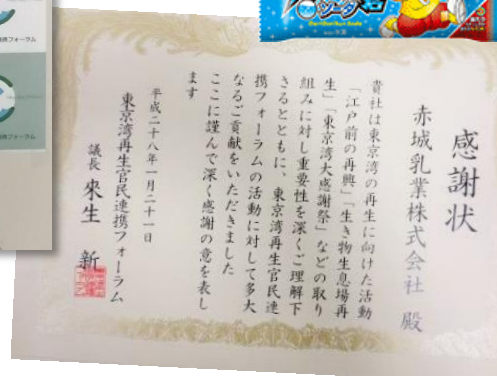 感謝状
赤城乳業株式会社 殿
貴社は東京湾の再生に向けた活動
「江戸前の再興」「生き物生息場再
生」「東京湾大感謝祭」などの取り
組みに対し重要性を深くご理解下
さるとともに、東京湾再生官民連
携フォーラムの活動に対して多大
なるご貢献をいただきました
ここに謹んで深く感謝の意を表し
ます
平成二十八年一月二十一日
東京湾再生官民連携フォーラム
議長 來生 新
携フォーラム
携フォーラム